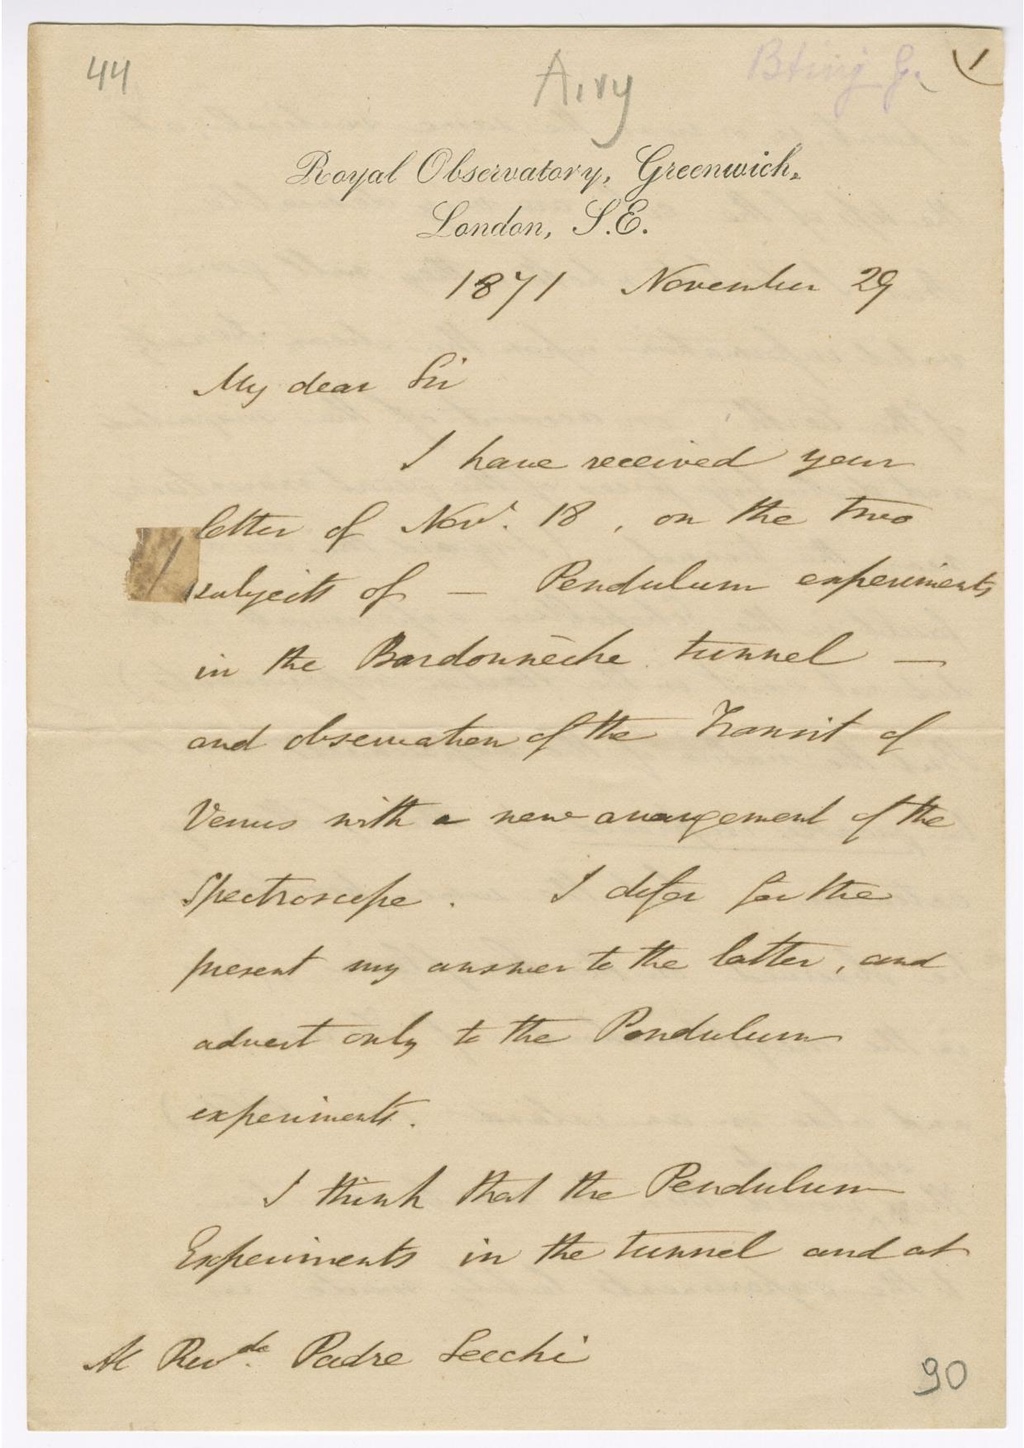 44
Airy
1
Royal Observatory, Greenwich,
London, S.E.
1871 November 29
My dear Sir
I have received your
letter of Novr. 18, on the two
subjects of — Pendulum experiments
in the Bardonnèche tunnel —
and observation of the Transit of
Venus with a new arrangement of the
Spectroscope. I defer for the
present my answer to the latter, and
advert only to the Pendulum
experiments.
I think that the Pendulum
Experiments in the tunnel and at
Al Revde. Padre Secchi
90